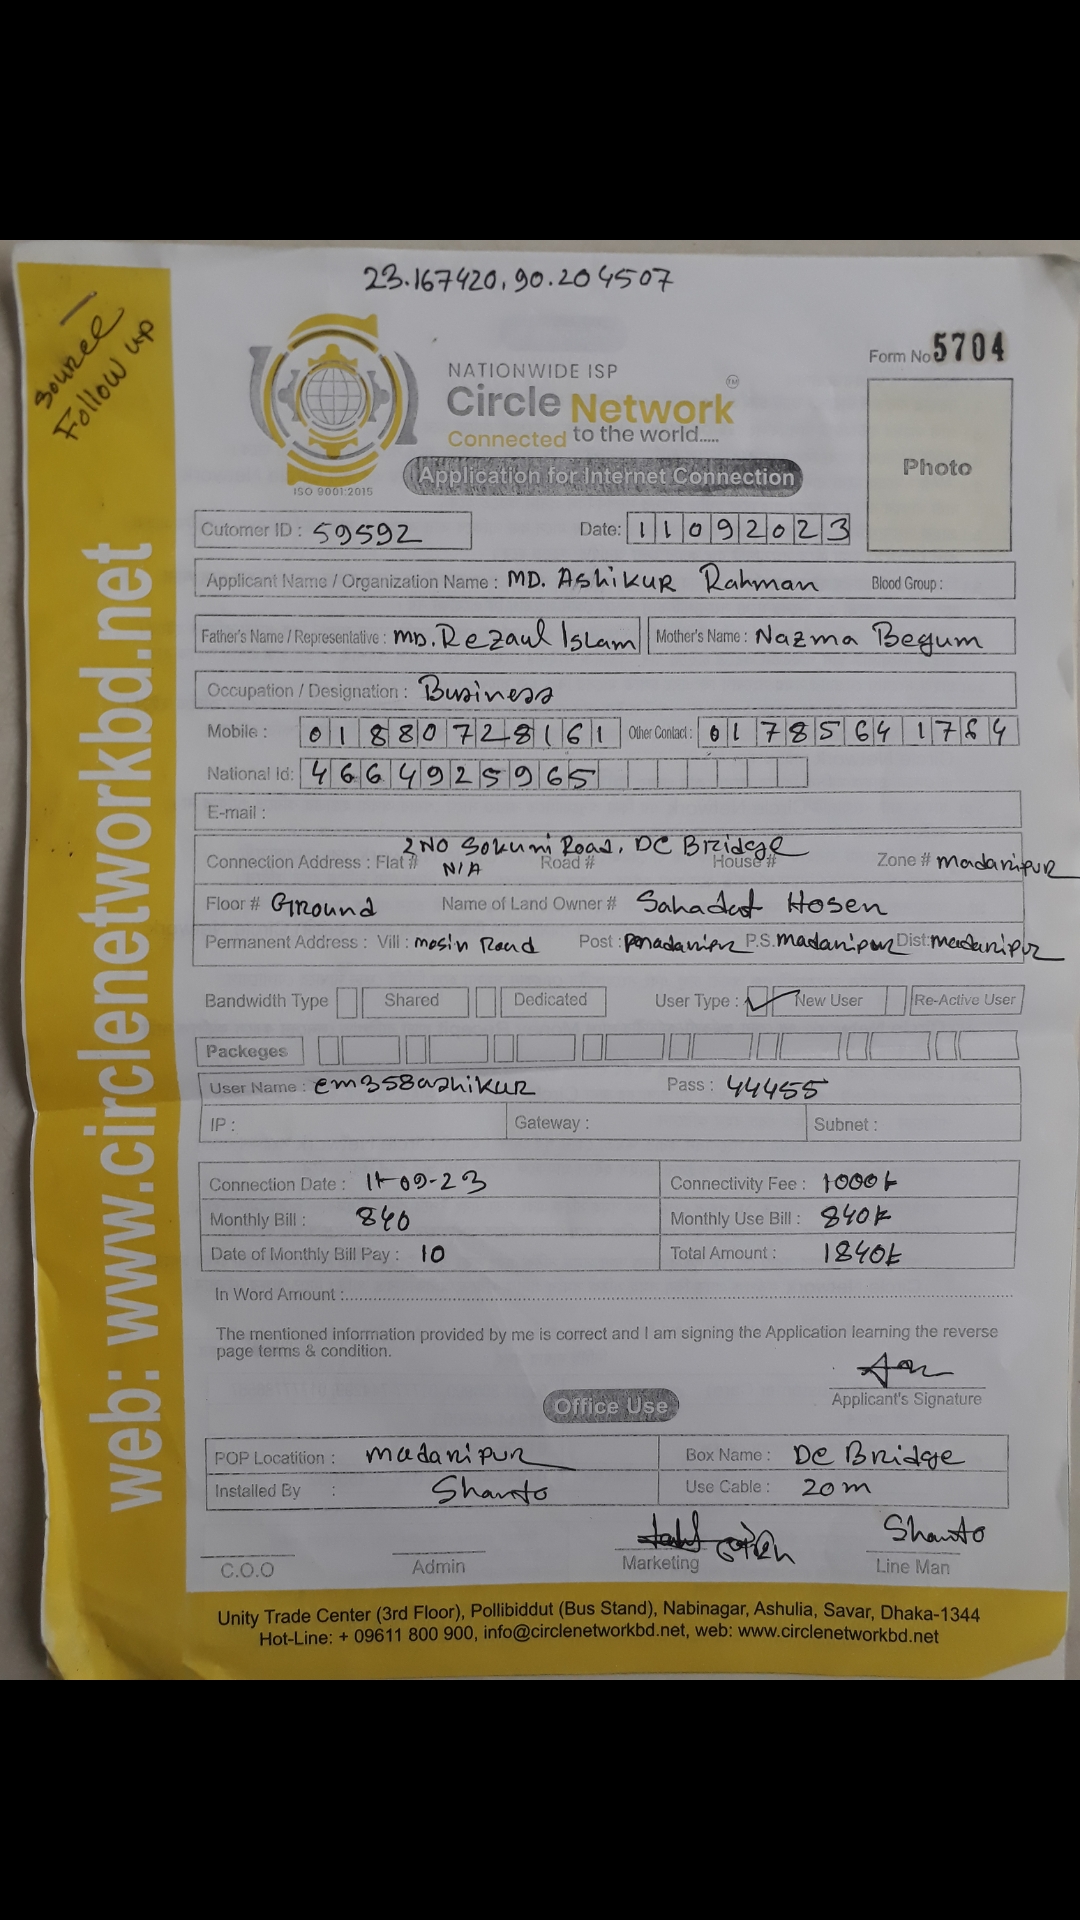 23.167420, 90.204507
Source
Follow up
Form No 5704
NATIONWIDE ISP
Circle Network
SM
Connected to the world.....
ISO 9001:2015
Application for Internet Connection
Photo
Cutomer ID : 59592
Date: 11092023
Applicant Name / Organization Name : MD. Ashikur Rahman Blood Group :
Father's Name / Representative : MD. Rezaul Islam Mother's Name : Nazma Begum
Occupation / Designation : Business
Mobile : 01880728161 Other Contact : 01785641764
National Id: 4664925965
E-mail :
2NO Sokuni Road, DC Bridge
Connection Address : Flat # N/A Road # House # Zone # madaripur
Floor # Ground Name of Land Owner # Sahadat Hosen
Permanent Address : Vill : mosin Road Post : madaripur P.S. madaripur Dist: madaripur
Bandwidth Type Shared Dedicated User Type : ✓ New User Re-Active User
Packeges
User Name : em358ashikur Pass : 44455
IP : Gateway : Subnet :
Connection Date : 11-09-23 Connectivity Fee : 1000/-
Monthly Bill : 840 Monthly Use Bill : 840/-
Date of Monthly Bill Pay : 10 Total Amount : 1840/-
In Word Amount :
The mentioned information provided by me is correct and I am signing the Application learning the reverse
page terms & condition.
Applicant's Signature
Office Use
POP Locatition : madaripur Box Name : DC Bridge
Installed By : Shanto Use Cable : 20m
Shanto
C.O.O Admin Marketing Line Man
Unity Trade Center (3rd Floor), Pollibiddut (Bus Stand), Nabinagar, Ashulia, Savar, Dhaka-1344
Hot-Line: + 09611 800 900, info@circlenetworkbd.net, web: www.circlenetworkbd.net
web: www.circlenetworkbd.net